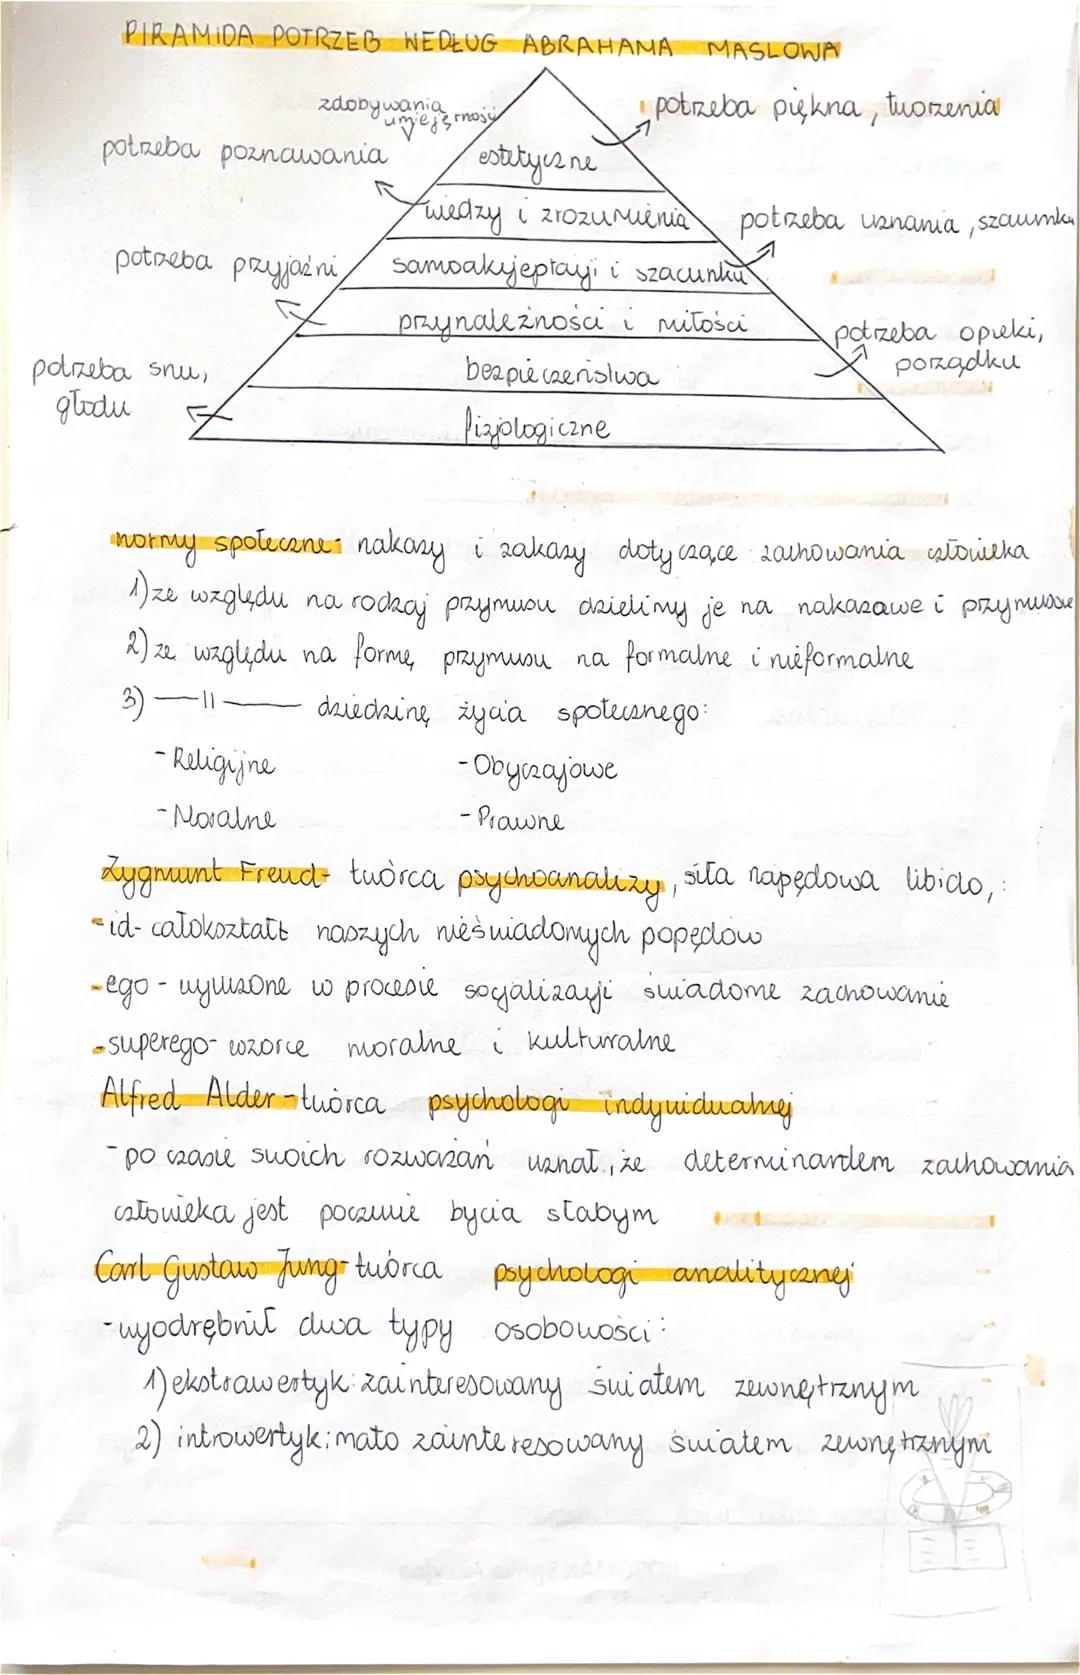 PIRAMIDA POTRZEB WEDŁUG ABRAHAMA MASLOWA
zdobywania
umiejętności
potrzeba poznawania
potrzeba piękna, tworzenia
estetyczne
wiedzy i zrozumienia
potrzeba uznania, szacunku
potrzeba przyjaźni
samoakceptacji i szacunku
przynależności i miłości
potrzeba opieki,
porządku
potrzeba snu,
głodu
bezpieczeństwa
fizjologiczne
normy społeczne- nakazy i zakazy dotyczące zachowania człowieka
1) ze względu na rodzaj przymusu dzielimy je na nakazawe i przymusowe
2) ze względu na formę przymusu na formalne i nieformalne
3) —II— dziedzinę życia społecznego:
- Religijne - Obyczajowe
- Moralne - Prawne
Zygmunt Freud- twórca psychoanalizy, siła napędowa libido, :
- id- całokształt naszych nieświadomych popędów
- ego - wyuczone w procesie socjalizacji świadome zachowanie
- superego- wzorce moralne i kulturalne
Alfred Alder - twórca psychologi indywidualnej
- po czasie swoich rozważań uznał, że determinantem zachowania
człowieka jest poczucie bycia słabym
Carl Gustaw Jung- twórca psychologi analitycznej
- wyodrębnił dwa typy osobowości:
1) ekstrawertyk: zainteresowany światem zewnętrznym
2) introwertyk: mało zainteresowany światem zewnętrznym